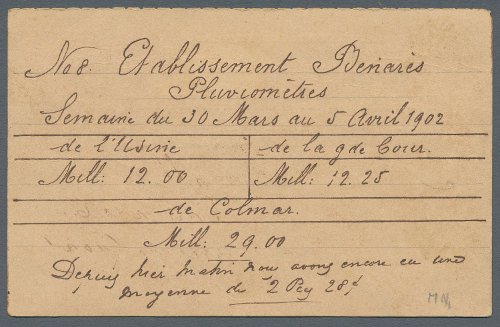 No 8. Etablissement Bénarès
Pluviomètres
Semaine du 30 Mars au 5 Avril 1902
de l'Usine de la gde Cour.
Mill: 12.00 Mill: 12.25
de Colmar.
Mill: 29.00
Depuis hier matin nous avons encore eu une
moyenne de 2 Pcy 28